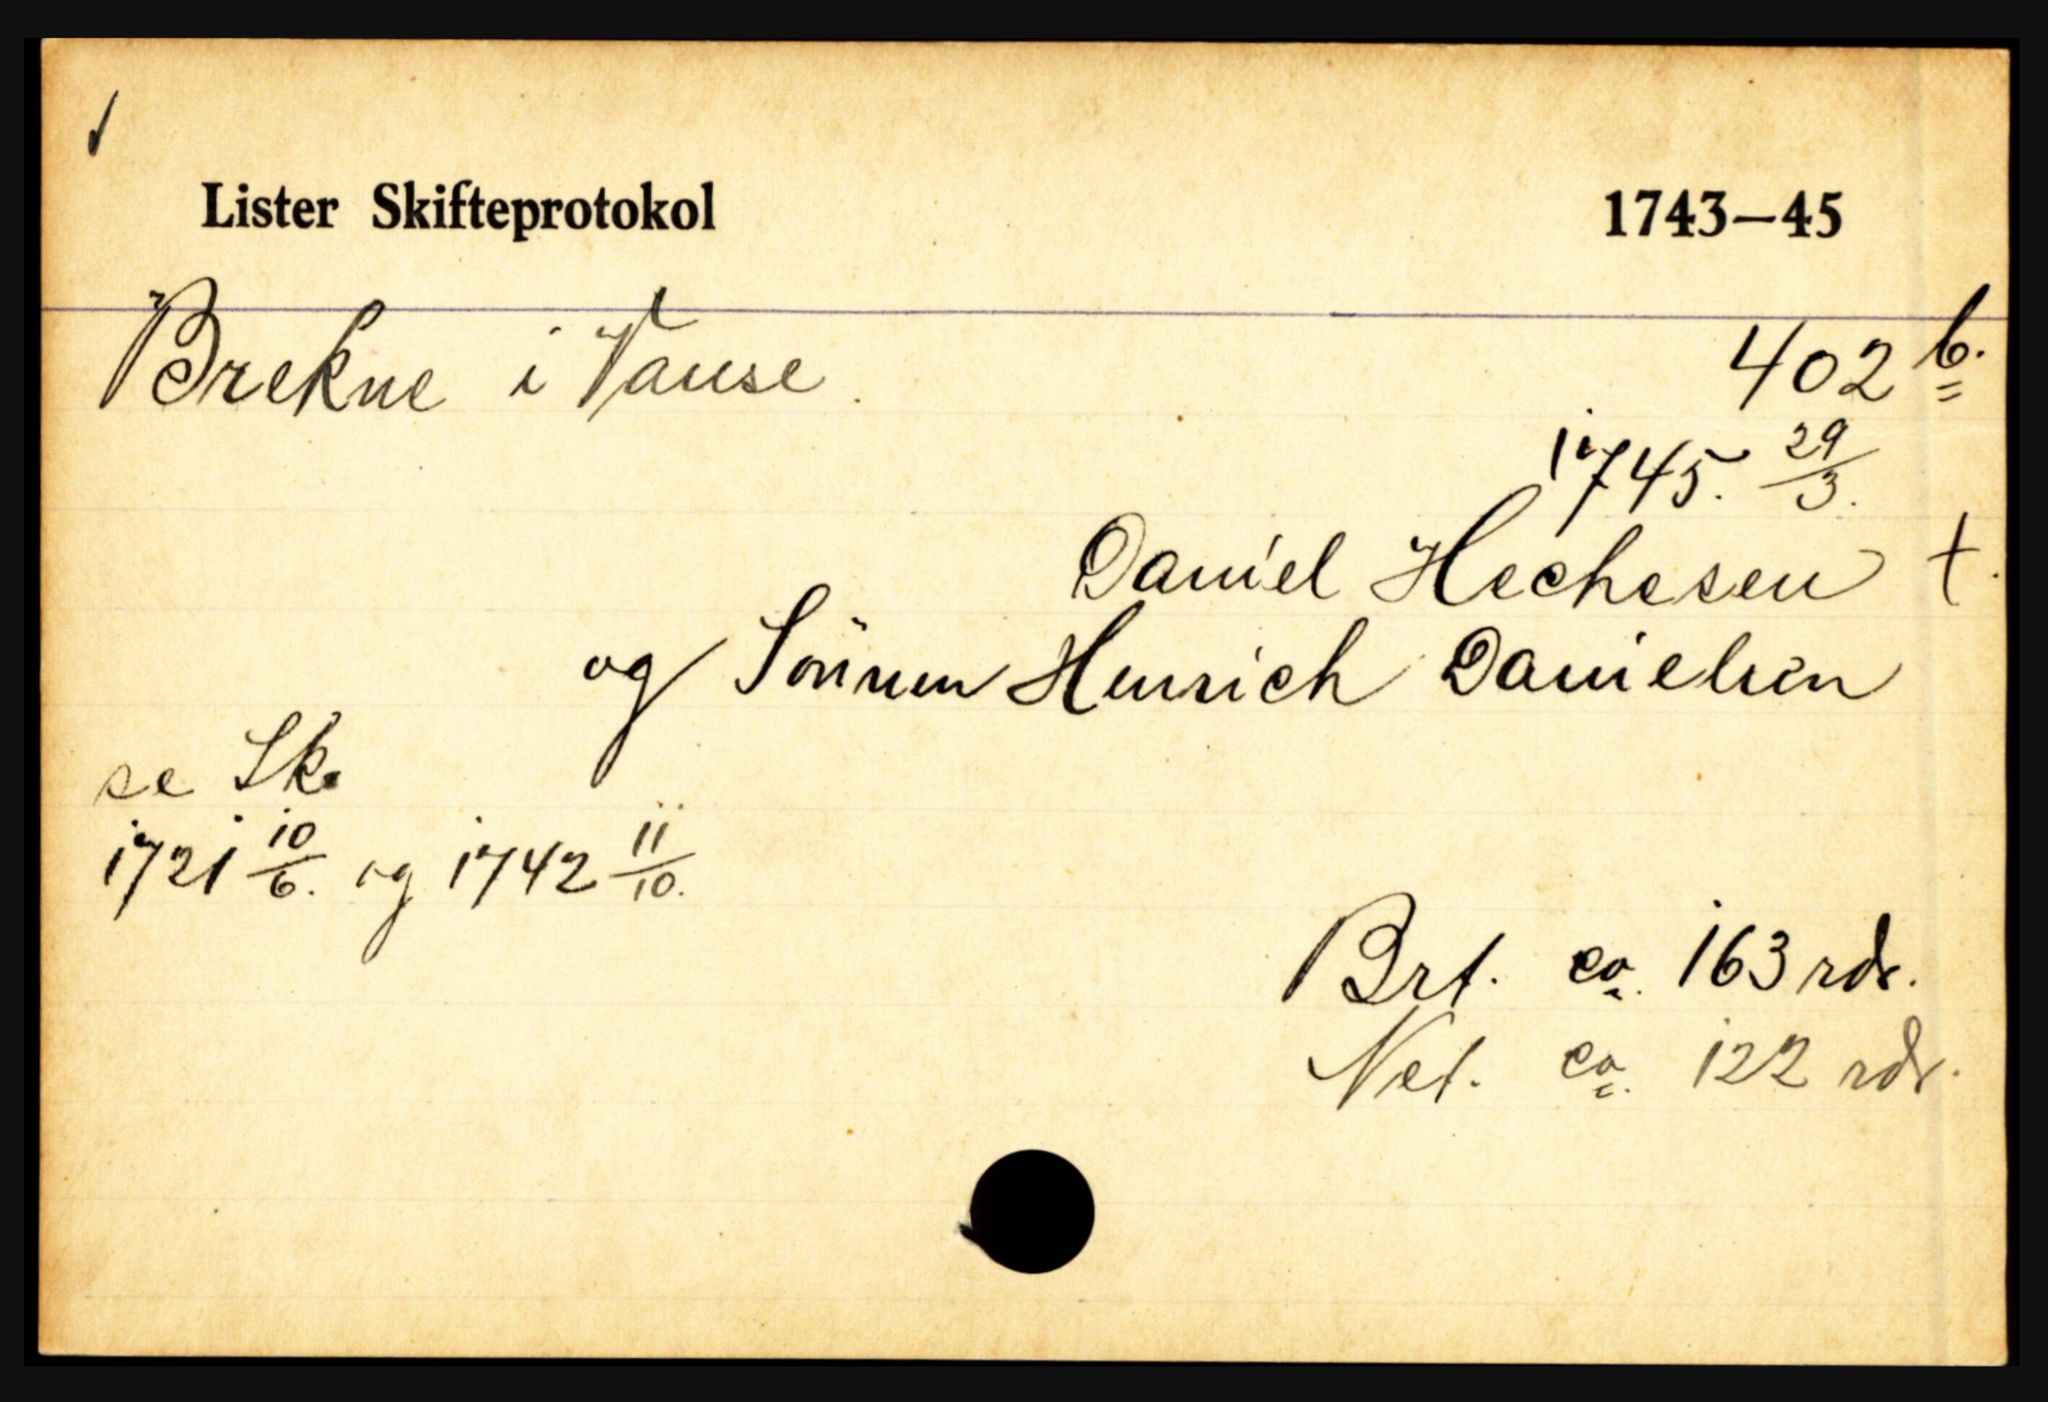 Lister Skifteprotokol 1743—45
Brekne i Vanse. 402 b.
1745. 29/3.
Daniel Hechesen †.
og Sönnen Henrich Danielsen
se Sk.
1721 10/6. og 1742 11/10.
Brt. ca. 163 rdr.
Net. ca. 122 rdr.